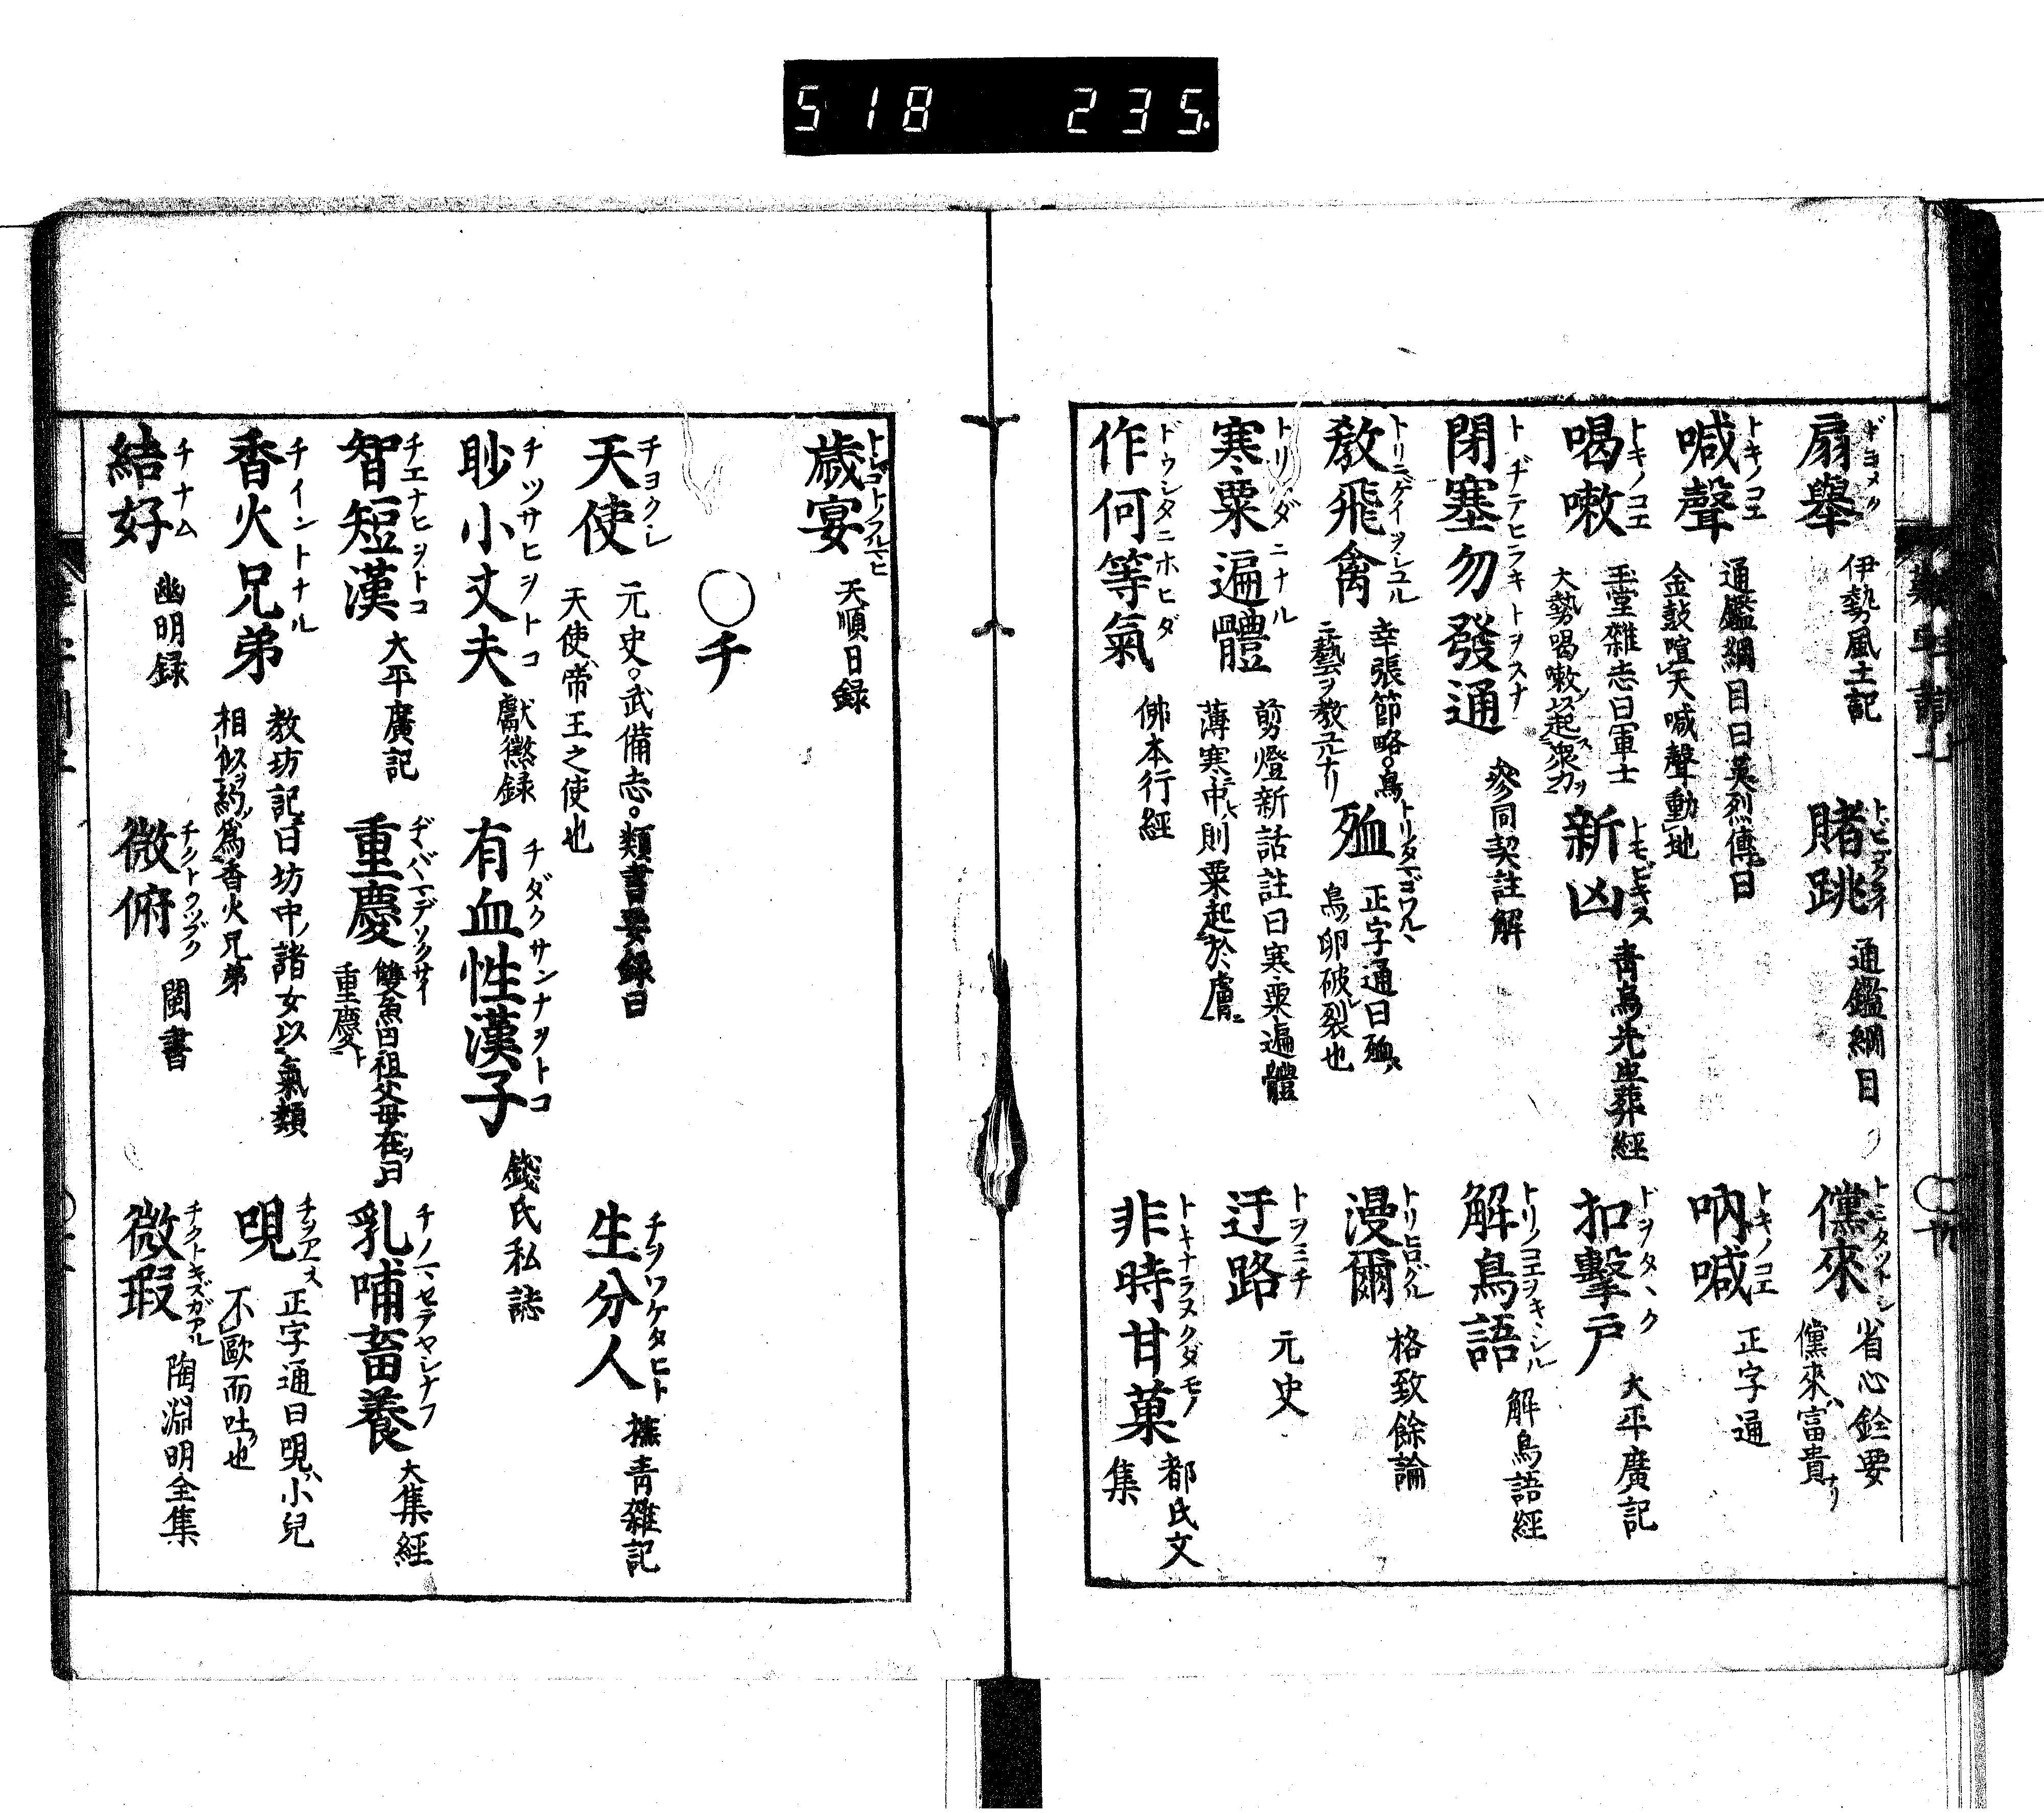 518 235.
扇擧 ドヨメク 伊勢風土記
賭跳 通鑑綱目
儻來 省心銓要 儻來ハ富貴ナリ
喊聲 トキノコエ 通鑑綱目曰英烈傳曰
金鼓喧天喊聲動地
吶喊 トキノコエ 正字通
喝嗷 トキノコエ 玉堂雜志曰軍士
大勢喝嗷以起衆力
新凶 トモビキス 靑烏先生葬經
扣擊戸 ドヲタヽク 大平廣記
閉塞勿發通 トヂテヒラキトヲスナ 參同契註解
解鳥語 トリノコエヲキヽシル 解鳥語經
教飛禽 トリニゲイヲシユル 幸張節略。鳥
ニ藝ヲ教ユナリ
殈 トリタマゴワルヽ 正字通曰殈ハ
鳥ノ卵破裂也
漫爾 格致餘論
寒粟遍體 トリハダニナル 剪燈新話註曰寒粟遍體
薄寒中則粟起於膚
迂路 トヲミチ 元史
作何等氣 ドウシタニホヒダ 佛本行經
非時甘菓 トキナラヌクダモノ 都氏文
集
歳宴 天順日録
〇チ
天使 チヨクシ 元史。武備志。類書要録曰
天使帝王之使也
生分人 チヲワケタヒト 摭青雜記
眇小丈夫 チツサヒヲトコ 獻懲録
有血性漢子 チダクサンナヲトコ 錢氏私誌
智短漢 チエナヒヲトコ 大平廣記
重慶 ヂヾバヾマデソクサイ 雙魚曰祖父母在曰
重慶ト
乳哺畜養 チノマセテヤシナフ 大集經
香火兄弟 チイントナル 教坊記曰坊中諸女以氣類
相似約爲香火兄弟
哯 正字通曰哯ハ小兒
不歐而吐也
結好 チナム 幽明録
微俯 チクトウツブク 閩書
微瑕 チクトキズガアル 陶淵明全集